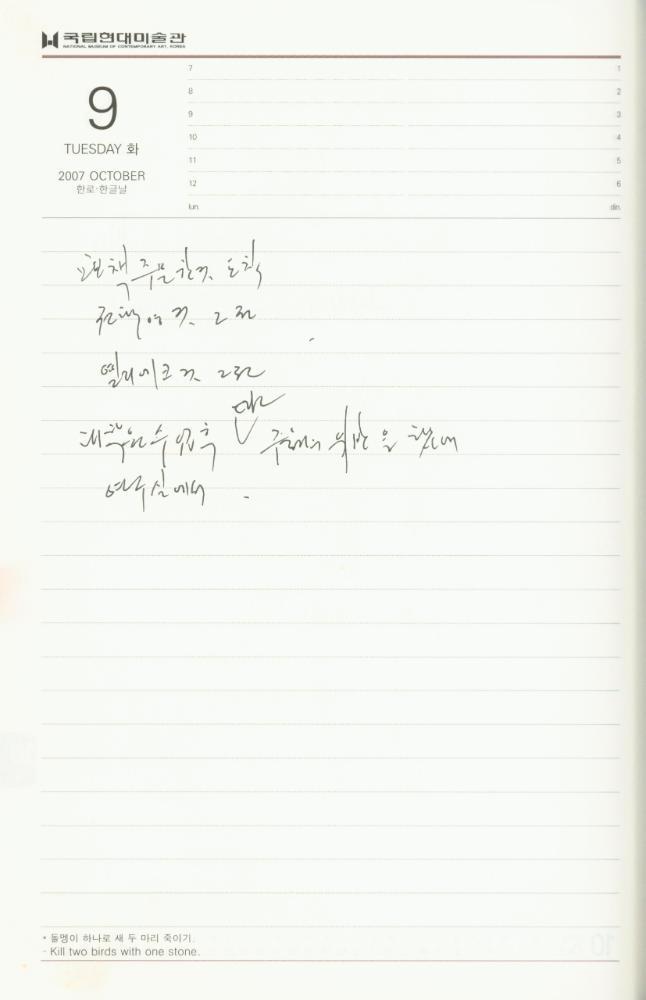 국립현대미술관
NATIONAL MUSEUM OF CONTEMPORARY ART, KOREA
9
TUESDAY 화
2007 OCTOBER
한로·한글날
7 1
8 2
9 3
10 4
11 5
12 6
lun. din.
책 주문한것 도착
2권
것 2권
대학원 수업 후 을 했네
연구실에서
• 돌멩이 하나로 새 두 마리 죽이기.
- Kill two birds with one stone.